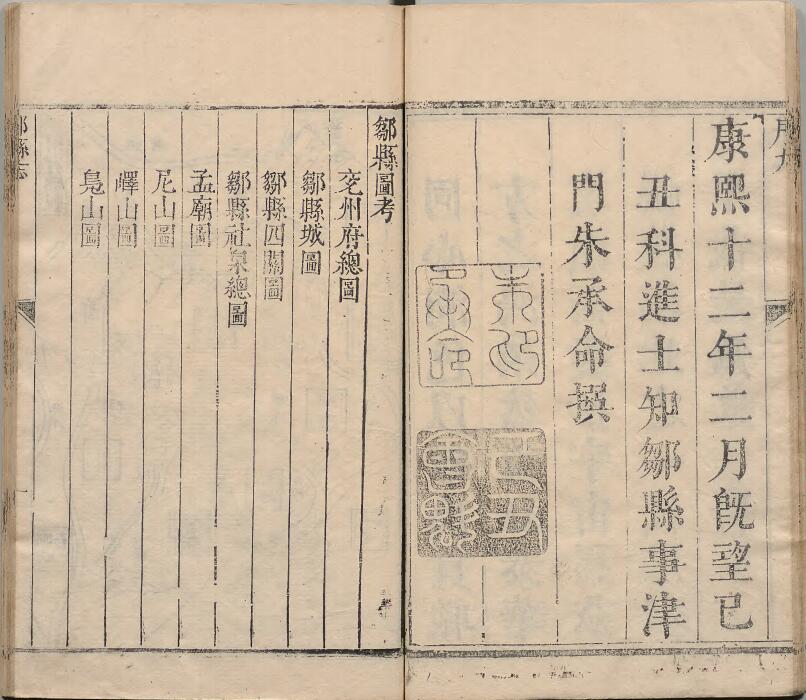 康熙十二年二月既望己
丑科進士知鄒縣事津
門朱承命撰
鄒縣圖考
兖州府總圖
鄒縣城圖
鄒縣四關圖
鄒縣社泉總圖
孟廟圖
尼山圖
嶧山圖
鳧山圖
鄒縣志